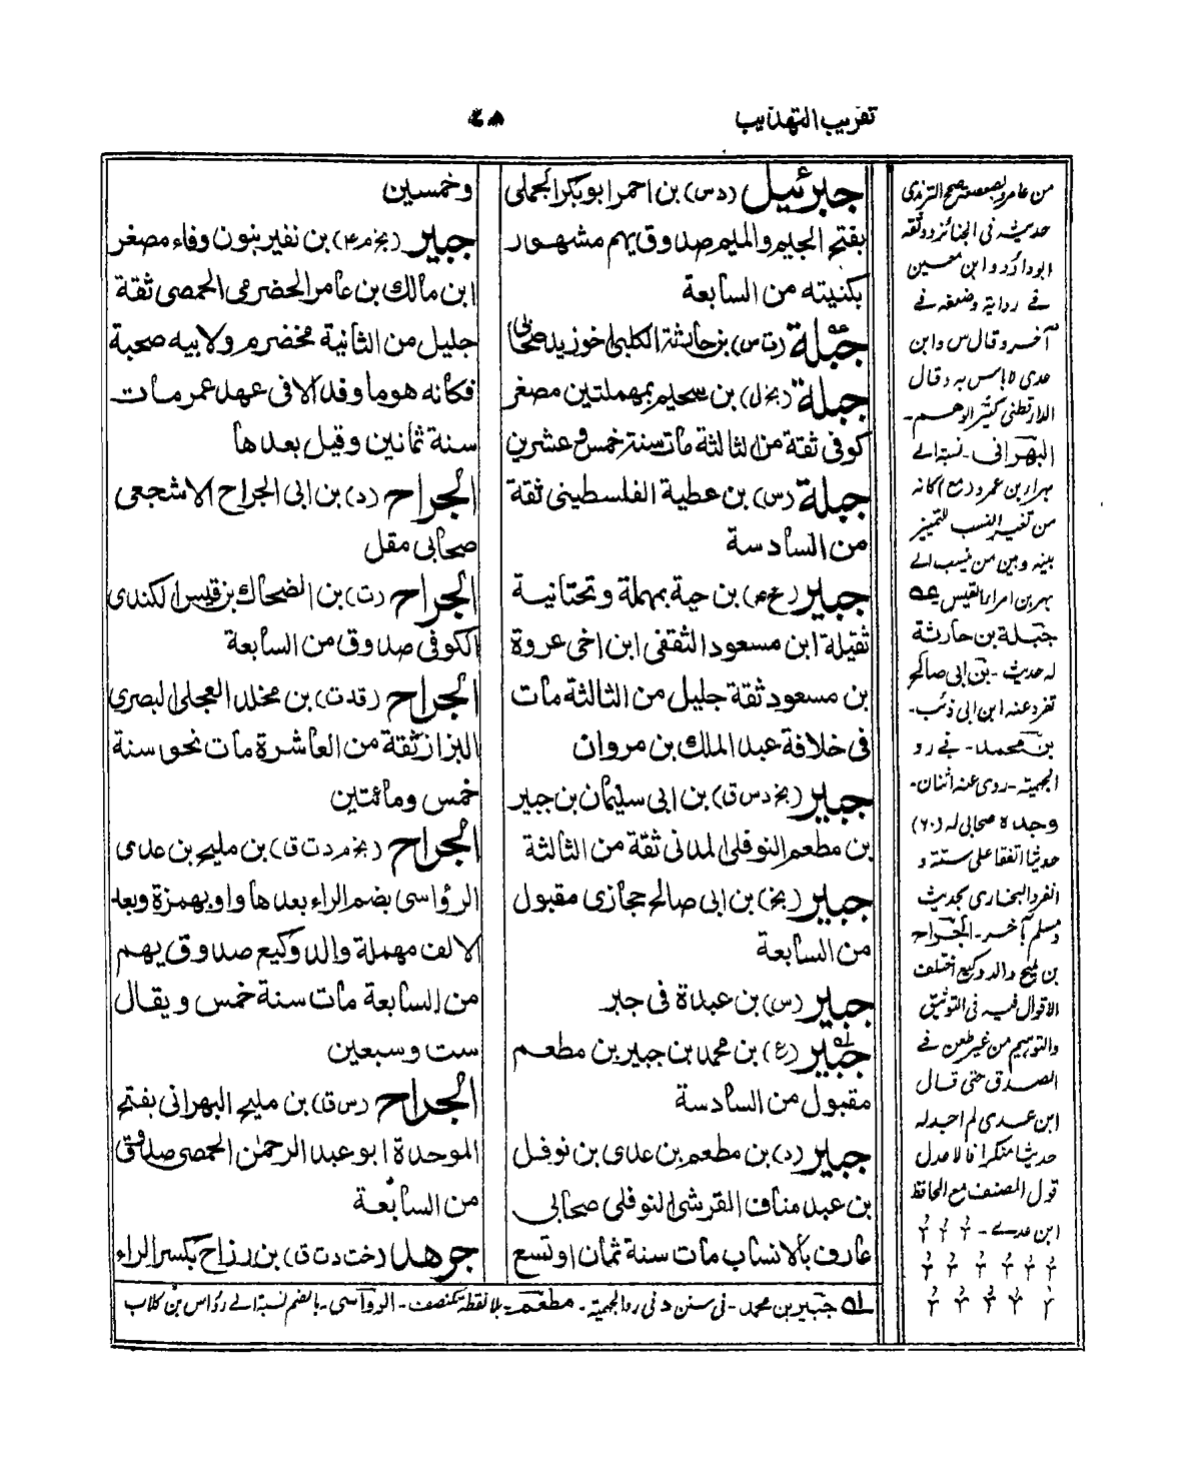 تقريب التهذيب
٤٨
جبرئيل (دس) بن احمر ابو بكر الجملى
بفتح الجيم والميم صدوق يهم مشهور
بكنيته من السابعة
جبلة (ت س) بن حارثة الكلبى اخو زيد صحابى
جبلة (بخ ل) بن سحيم بمهملتين مصغر
كوفى ثقة من الثالثة مات سنة خمس وعشرين
جبلة (س) بن عطية الفلسطينى ثقة
من السادسة
جبير (خ ٤) بن حية بمهملة وتحتانية
ثقيلة ابن مسعود الثقفى ابن اخى عروة
بن مسعود ثقة جليل من الثالثة مات
فى خلافة عبد الملك بن مروان
جبير (بخ دس ق) بن ابى سليمان بن جبير
بن مطعم النوفلى المدنى ثقة من الثالثة
جبير (بخ) بن ابى صالح حجازى مقبول
من السابعة
جبير (س) بن عبدة فى جبر
جبير (ع) بن محمد بن جبير بن مطعم
مقبول من السادسة
جبير (د) بن مطعم بن عدى بن نوفل
بن عبد مناف القرشى النوفلى صحابى
عارف بالانساب مات سنة ثمان او تسع
وخمسين
جبير (بخ م ٤) بن نفير بنون وفاء مصغر
ابن مالك بن عامر الحضرمى الحمصى ثقة
جليل من الثانية مخضرم ولابيه صحبة
فكأنه هو ما وفد الا فى عهد عمر مات
سنة ثمانين وقيل بعدها
الجراح (د) بن ابى الجراح الاشجعى
صحابى مقل
الجراح (ت) بن الضحاك بن قيس الكندى
الكوفى صدوق من السابعة
الجراح (قد ت) بن مخلد العجلى البصرى
البزاز ثقة من العاشرة مات نحو سنة
خمس ومائتين
الجراح (بخ م د ت ق) بن مليح بن عدى
الرؤاسى بضم الراء بعدها واو بهمزة وبعد
الالف مهملة والد وكيع صدوق يهم
من السابعة مات سنة خمس ويقال
ست وسبعين
الجراح (س ق) بن مليح البهرانى بفتح
الموحدة ابو عبد الرحمن الحمصى صدوق
من السابعة
جرهد (خت د ت ق) بن رزاح بكسر الراء
من عامر بن صعصعة صحح الترمذى
حديثه فى الجنائز ووثقه
ابوداؤد وابن معين
فى رواية وضعفه فى
آخر وقال س وابن
عدى لا باس به وقال
الدارقطنى كثير الوهم-
البهرانى-نسبة الى
بهرا بن عمرو
من تغير النسب للتمييز
بينه وبين من ينسب الى
بهر بن امرأ القيس
جبلة بن حارثة
له حديث-بن ابى صالح
تفرد عنه ابن ابى ذئب-
بن محمد-فى رد
الجهمية-روى عنه اثنان-
وجده صحابى له (٦٠)
حديثا اتفقا على ستة و
انفرد البخارى بحديث
ومسلم بآخر-الجراح
بن مليح والد وكيع اختلف
الاقوال فيه فى التوثيق
والتوهيم من غير طعن فى
الصدق حتى قال
ابن عدى لم اجد له
حديثا منكرا فالاعدل
قول المصنف مع الحافظ
ابن عدى-
جبير بن محمد-فى سنن د فى رد الجهمية-مطعم-بلا نقطة كمنصف-الرواسى-بالضم نسبة الى رؤاس بن كلاب